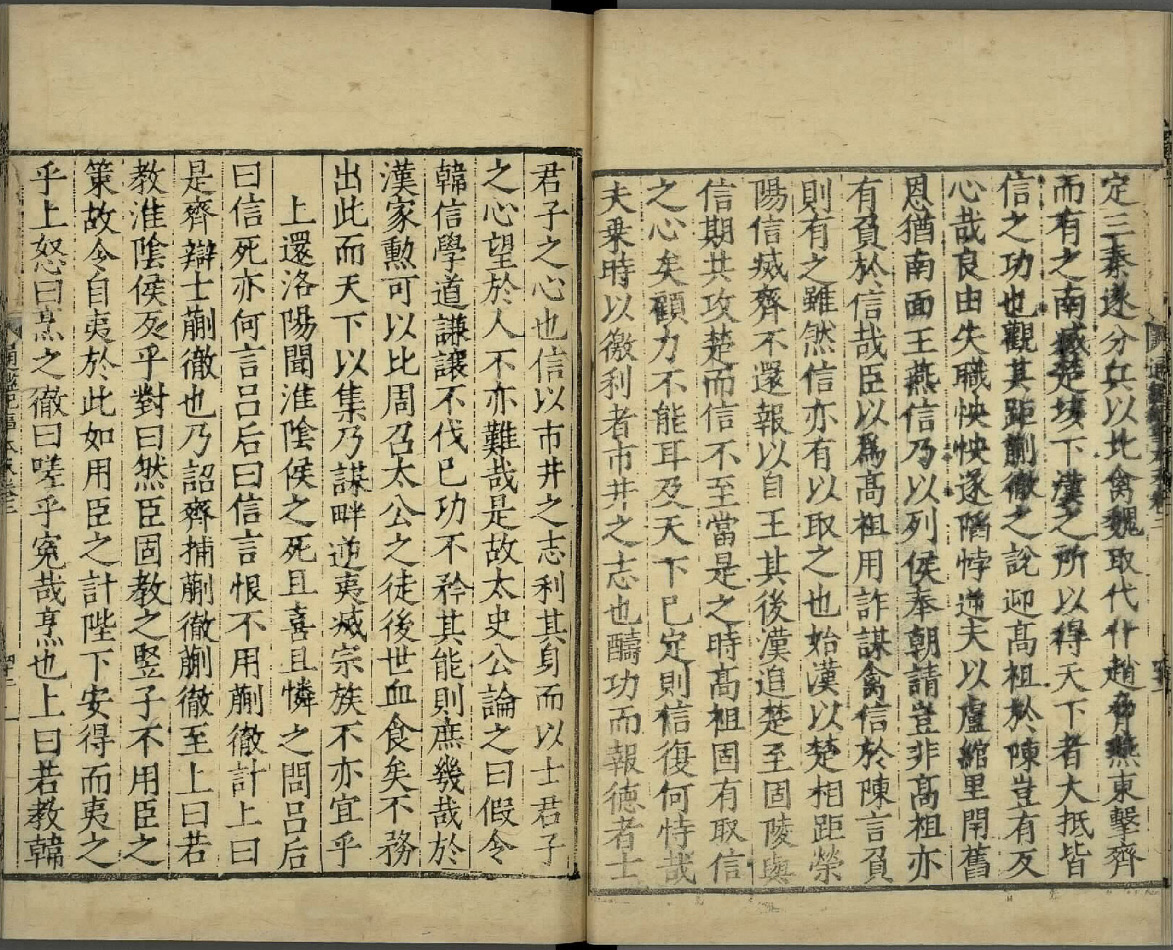 定三秦遂分兵以北禽魏取代仆趙脅燕東擊齊
而有之南滅楚垓下漢之所以得天下者大抵皆
信之功也觀其距蒯徹之說迎高祖於陳豈有反
心哉良由失職怏怏遂陷悖逆夫以盧綰里閈舊
恩猶南面王燕信乃以列侯奉朝請豈非高祖亦
有負於信哉臣以爲高祖用詐謀禽信於陳言負
則有之雖然信亦有以取之也始漢以楚相距滎
陽信滅齊不還報以自王其後漢追楚至固陵與
信期共攻楚而信不至當是之時高祖固有取信
之心矣顧力不能耳及天下已定則信復何恃哉
夫乗時以徼利者市井之志也醻功而報德者士
君子之心也信以市井之志利其身而以士君子
之心望於人不亦難哉是故太史公論之曰假令
韓信學道謙讓不伐已功不矜其能則庶幾哉於
漢家勲可以比周召太公之徒後世血食矣不務
出此而天下以集乃謀畔逆夷滅宗族不亦宜乎
上還洛陽聞淮陰侯之死且喜且憐之問吕后
曰信死亦何言吕后曰信言恨不用蒯徹計上曰
是齊辯士蒯徹也乃詔齊捕蒯徹蒯徹至上曰若
教淮陰侯反乎對曰然臣固教之豎子不用臣之
策故令自夷於此如用臣之計陛下安得而夷之
乎上怒曰烹之徹曰嗟乎寃哉烹也上曰若教韓